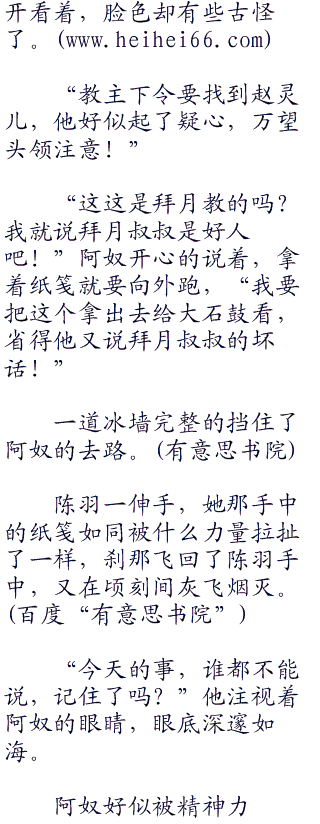 开看着，脸色却有些古怪
了。(www.heihei66.com)
“教主下令要找到赵灵
儿，他好似起了疑心，万望
头领注意！”
“这这是拜月教的吗？
我就说拜月叔叔是好人
吧！”阿奴开心的说着，拿
着纸笺就要向外跑，“我要
把这个拿出去给大石鼓看，
省得他又说拜月叔叔的坏
话！”
一道冰墙完整的挡住了
阿奴的去路。(有意思书院)
陈羽一伸手，她那手中
的纸笺如同被什么力量拉扯
了一样，刹那飞回了陈羽手
中，又在顷刻间灰飞烟灭。
(百度“有意思书院”)
“今天的事，谁都不能
说，记住了吗？”他注视着
阿奴的眼睛，眼底深邃如
海。
阿奴好似被精神力